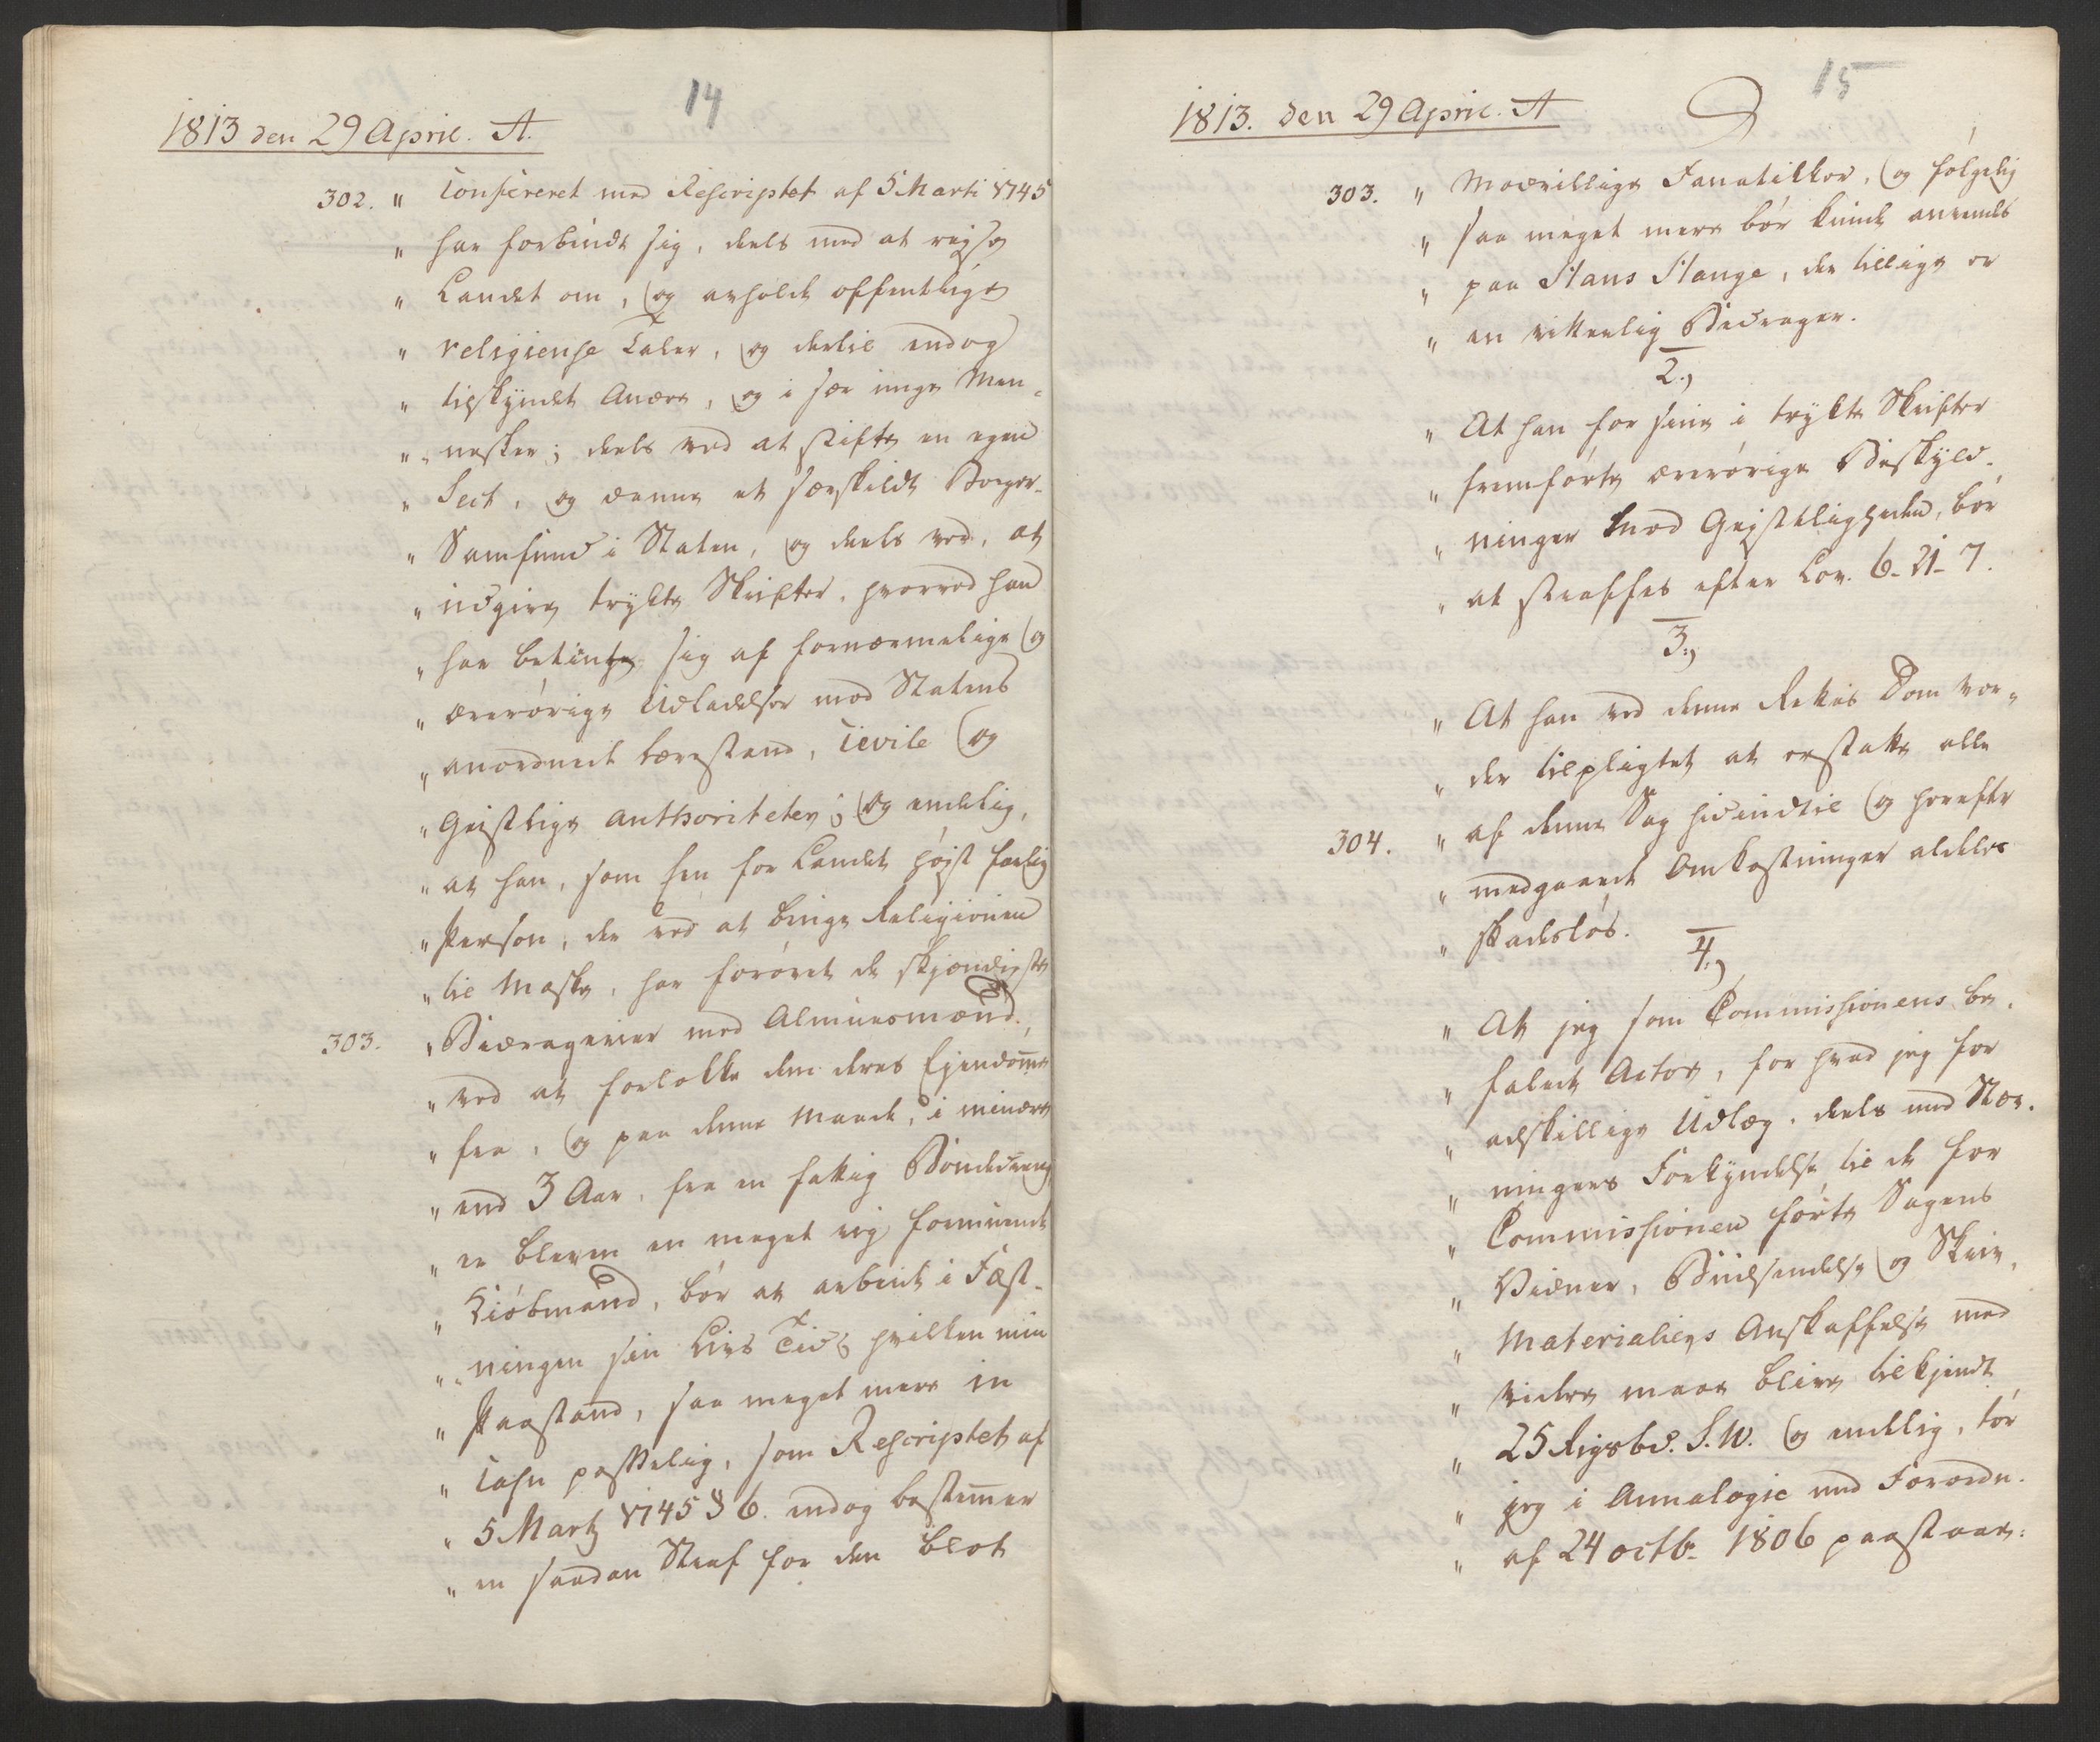 14
1813 den 29 April. A.
302. " Confereret med Rescriptet af 5 Marti 1745
" har forbrudt sig, deels med at rejse
" Landet om, og anholde offentlige
" religieuse Taler, og dertil endog
" tilskyndt Andre, og i sær unge Men-
" "nesker; deels ved at stifte en egen
" Sect, og danne et særskildt Borger-
" Samfund i Staten, og deels ved, at
" udgive trykte Skrifter, hvorved han
" har betient sig af fornærmelige og
" ærerørige Udladelser mod Statens
" anordnede Lærestand, Civile og
" Geistlige Authoriteter; og endelig,
" at han, som en for Landet højst farlig
" Person, der ved at bruge Religionen
" til Maske, har forøvet de skjændigste
303. " Bedragerier mod Almuesmænd,
" ved at forlokke dem deres Ejendomme
" fra, og paa denne Maade, i mindre
" end 3 Aar, fra en fattig Bondedreng,
" er bleven en meget rig formuende
" Kiøbmand, bør at arbeide i Fæst-
" "ningen sin Livs Tid; hvilken min
" Paastand, saa meget mere in
" Casu passelig, som Rescriptet af
" 5 Martz 1745 § 6. endog bestemmer
" en saadan Straf for den blot
15
1813. den 29 April. A
303. " Modvillige Fanatikker, og følgelig
" saa meget mere bør kunde anvendes
" paa Hans Hauge, der tillige er
" en vitterlig Bedrager.
2.,
" At han for sine i trykte Skrifter
" fremførte ærerørige Beskyld-
" ninger mod Gejstligheden, bør
" at straffes efter Lov. 6-21-7.
3.,
" At han ved denne Rettes Dom vor-
" der tilpligtet at erstatte alle
304. " af denne Sag hidindtil og herefter
" medgaaede Omkostninger aldeles
" skadesløs.
4.,
" At jeg som Commissionens be-
" falede Actor, for hvad jeg for
" adskillige Udlæg, deels med Stev-
" ningers Forkyndelse til de for
" Commissionen førte Sagens
" Vidner, Budsendelse og Skriv-
" Materialiers Anskaffelse med
" videre maae blive tilkjendt
" 25 Rigsbd. S.W. og endelig, tør
" jeg i Annalogie med Forordn.
" af 24 octbr. 1806 paastaae: